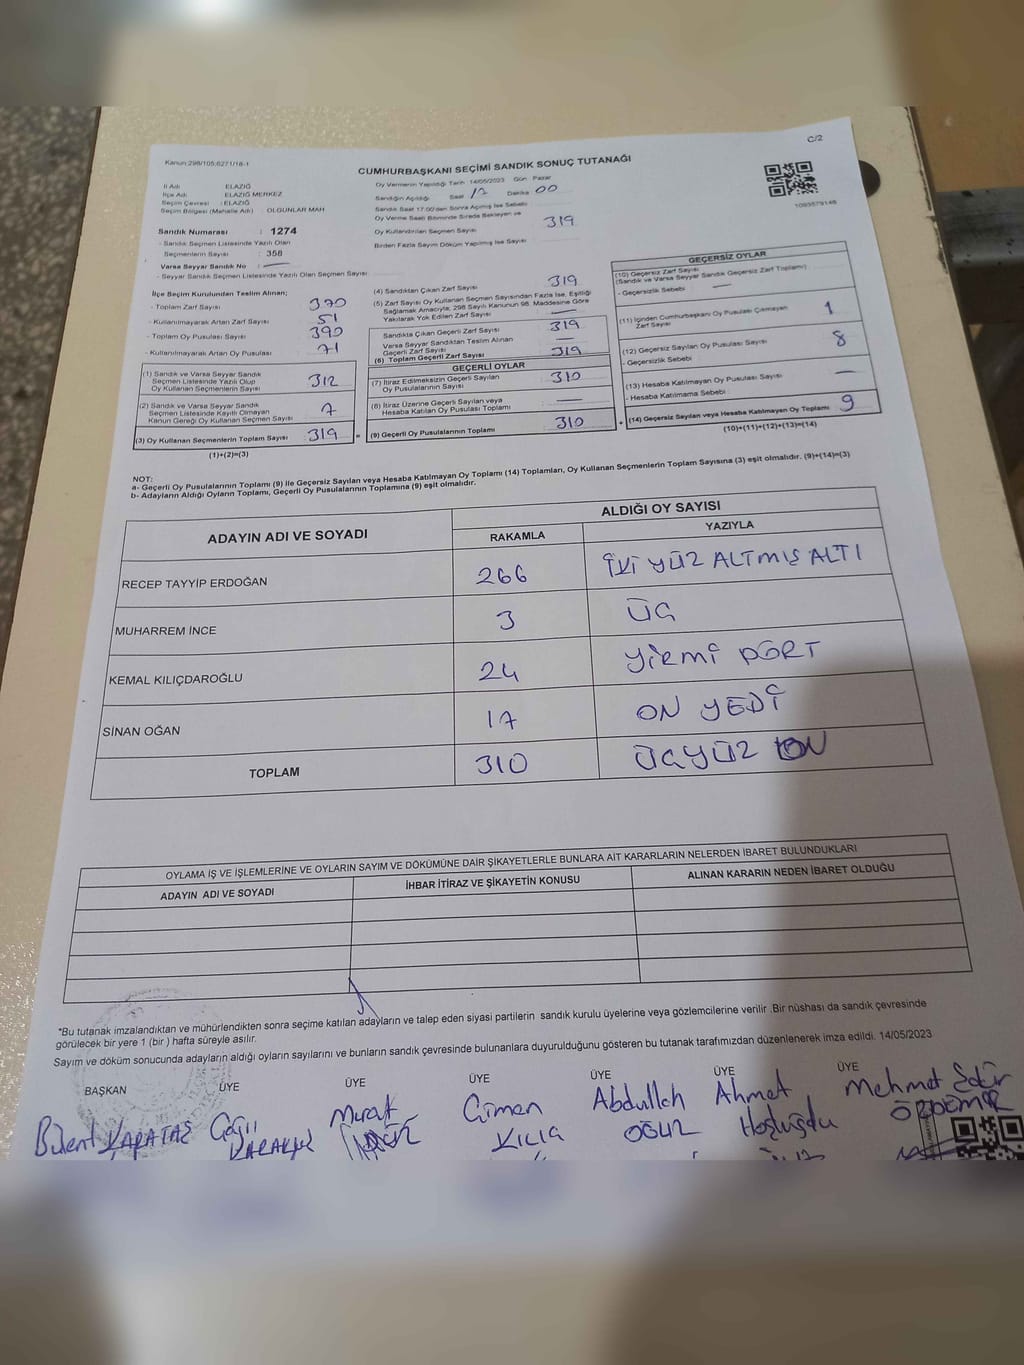 C/2
Kanun:298/105;6271/18-1
CUMHURBAŞKANI SEÇİMİ SANDIK SONUÇ TUTANAĞI
İl Adı : ELAZIĞ
İlçe Adı : ELAZIĞ MERKEZ
Seçim Çevresi : ELAZIĞ
Seçim Bölgesi (Mahalle Adı) : OLGUNLAR MAH
Sandık Numarası : 1274
- Sandık Seçmen Listesinde Yazılı Olan
Seçmenlerin Sayısı : 358
Varsa Seyyar Sandık No : —
- Seyyar Sandık Seçmen Listesinde Yazılı Olan Seçmen Sayısı
Oy Vermenin Yapıldığı Tarih :14/05/2023 Gün Pazar
Sandığın Açıldığı Saat 17 Dakika 00
Sandık Saat 17:00'den Sonra Açılmış İse Sebebi
Oy Verme Saati Bitiminde Sırada Bekleyen ve
Oy Kullandırılan Seçmen Sayısı 319
Birden Fazla Sayım Döküm Yapılmış İse Sayısı
1093579148
İlçe Seçim Kurulundan Teslim Alınan;
- Toplam Zarf Sayısı 370
- Kullanılmayarak Artan Zarf Sayısı 51
- Toplam Oy Pusulası Sayısı 390
- Kullanılmayarak Artan Oy Pusulası 71
(1) Sandık ve Varsa Seyyar Sandık
Seçmen Listesinde Yazılı Olup
Oy Kullanan Seçmenlerin Sayısı 312
(2) Sandık ve Varsa Seyyar Sandık
Seçmen Listesinde Kayıtlı Olmayan
Kanun Gereği Oy Kullanan Seçmen Sayısı 7
(3) Oy Kullanan Seçmenlerin Toplam Sayısı 319 =
(1)+(2)=(3)
(4) Sandıktan Çıkan Zarf Sayısı 319
(5) Zarf Sayısı Oy Kullanan Seçmen Sayısından Fazla İse, Eşitliği
Sağlamak Amacıyla; 298 Sayılı Kanunun 98. Maddesine Göre
Yakılarak Yok Edilen Zarf Sayısı —
Sandıkta Çıkan Geçerli Zarf Sayısı 319
Varsa Seyyar Sandıktan Teslim Alınan
Geçerli Zarf Sayısı —
(6) Toplam Geçerli Zarf Sayısı 319
GEÇERLİ OYLAR
(7) İtiraz Edilmeksizin Geçerli Sayılan
Oy Pusulalarının Sayısı 310
(8) İtiraz Üzerine Geçerli Sayılan veya
Hesaba Katılan Oy Pusulası Toplamı —
(9) Geçerli Oy Pusulalarının Toplamı 310 +
GEÇERSİZ OYLAR
(10) Geçersiz Zarf Sayısı
(Sandık ve Varsa Seyyar Sandık Geçersiz Zarf Toplamı)
- Geçersizlik Sebebi —
(11) İçinden Cumhurbaşkanı Oy Pusulası Çıkmayan
Zarf Sayısı 1
(12) Geçersiz Sayılan Oy Pusulası Sayısı 8
- Geçersizlik Sebebi
(13) Hesaba Katılmayan Oy Pusulası Sayısı —
- Hesaba Katılmama Sebebi
(14) Geçersiz Sayılan veya Hesaba Katılmayan Oy Toplamı 9
(10)+(11)+(12)+(13)=(14)
NOT:
a- Geçerli Oy Pusulalarının Toplamı (9) ile Geçersiz Sayılan veya Hesaba Katılmayan Oy Toplamı (14) Toplamları, Oy Kullanan Seçmenlerin Toplam Sayısına (3) eşit olmalıdır. (9)+(14)=(3)
b- Adayların Aldığı Oyların Toplamı, Geçerli Oy Pusulalarının Toplamına (9) eşit olmalıdır.
ADAYIN ADI VE SOYADI
ALDIĞI OY SAYISI
RAKAMLA YAZIYLA
RECEP TAYYİP ERDOĞAN 266 İKİ YÜZ ALTMIŞ ALTI
MUHARREM İNCE 3 ÜÇ
KEMAL KILIÇDAROĞLU 24 YİRMİ DÖRT
SİNAN OĞAN 17 ON YEDİ
TOPLAM 310 ÜÇYÜZ ON
OYLAMA İŞ VE İŞLEMLERİNE VE OYLARIN SAYIM VE DÖKÜMÜNE DAİR ŞİKAYETLERLE BUNLARA AİT KARARLARIN NELERDEN İBARET BULUNDUKLARI
ADAYIN ADI VE SOYADI İHBAR İTİRAZ VE ŞİKAYETİN KONUSU ALINAN KARARIN NEDEN İBARET OLDUĞU
*Bu tutanak imzalandıktan ve mühürlendikten sonra seçime katılan adayların ve talep eden siyasi partilerin sandık kurulu üyelerine veya gözlemcilerine verilir .Bir nüshası da sandık çevresinde
görülecek bir yere 1 (bir ) hafta süreyle asılır.
Sayım ve döküm sonucunda adayların aldığı oyların sayılarını ve bunların sandık çevresinde bulunanlara duyurulduğunu gösteren bu tutanak tarafımızdan düzenlenerek imza edildi. 14/05/2023
BAŞKAN ÜYE ÜYE ÜYE ÜYE ÜYE ÜYE
Bülent KARATAŞ
Murat
KILIÇ
Abdullah
OĞUZ
Ahmet
Hoşluğdu
Mehmet Edip
ÖZDEMİR